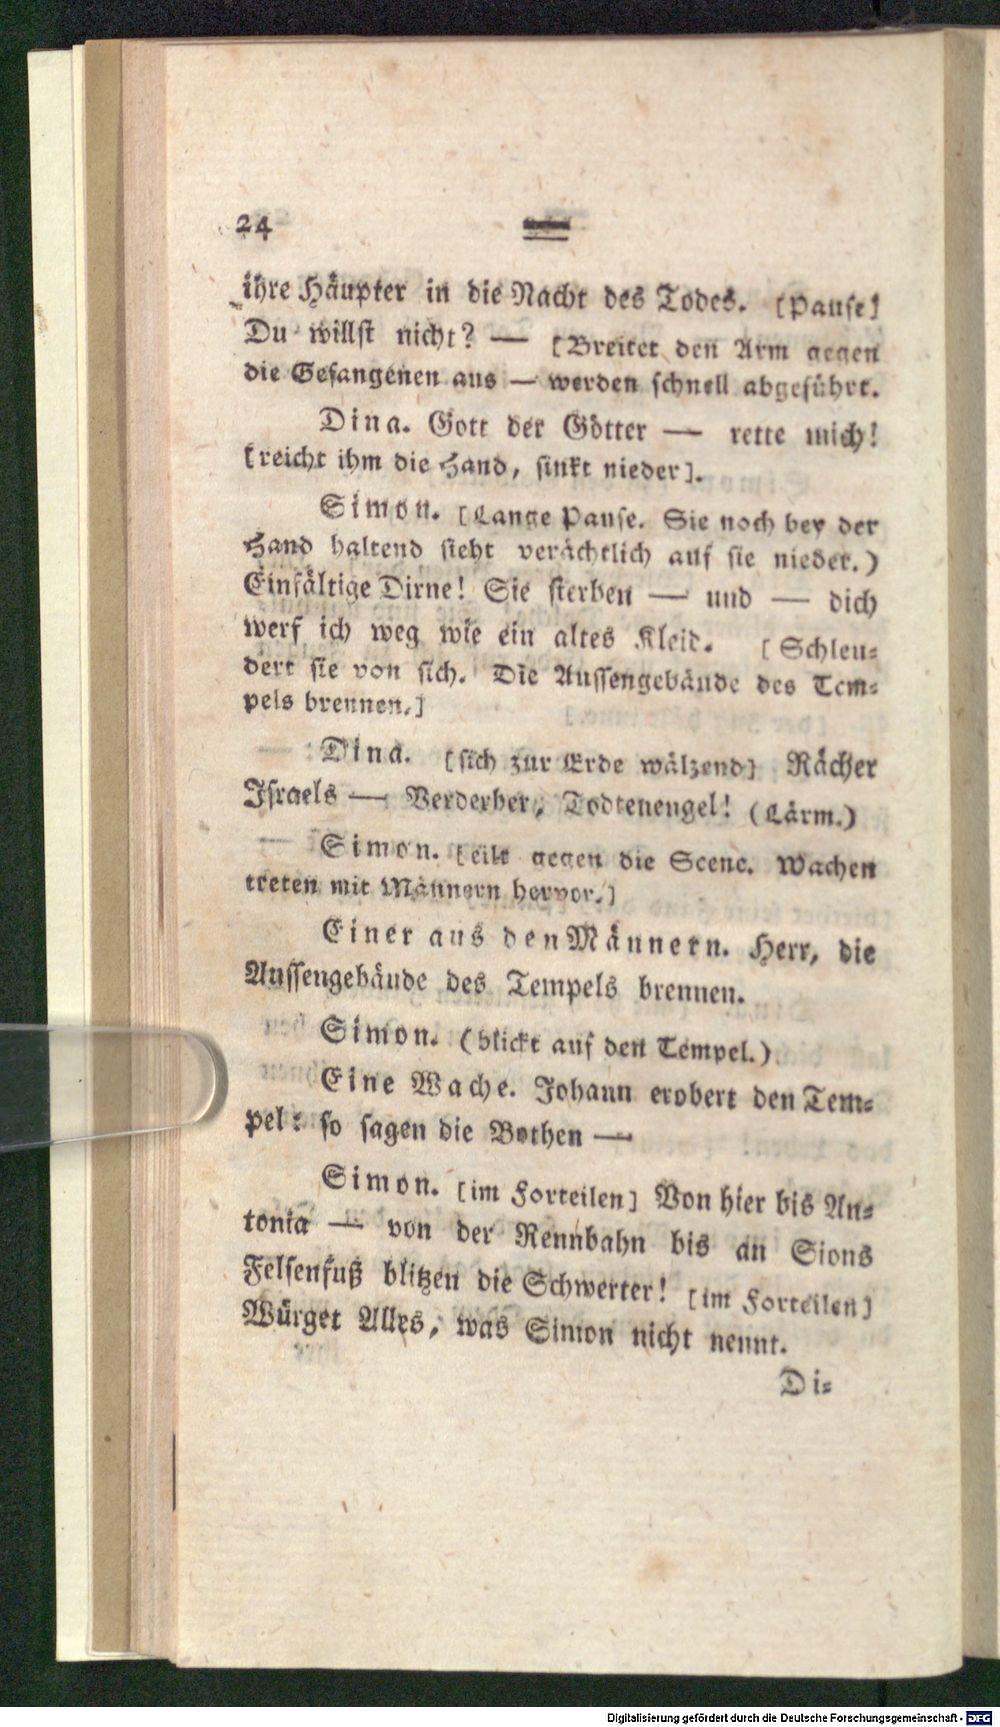 24
ihre Häupter in die Nacht des Todes. [Pause]
Du willst nicht? — [Breitet den Arm gegen
die Gefangenen aus — werden schnell abgeführt.
Dina. Gott der Götter — rette mich!
[reicht ihm die Hand, sinkt nieder].
Simon. [Lange Pause. Sie noch bey der
Hand haltend sieht verächtlich auf sie nieder.)
Einfältige Dirne! Sie sterben — und — dich
werf ich weg wie ein altes Kleid. [Schleu-
dert sie von sich. Die Aussengebäude des Tem-
pels brennen.]
Dina. [sich zur Erde wälzend] Rächer
Israels — Verderber, Todtenengel! (Lärm.)
Simon. [eilt gegen die Scene. Wachen
treten mit Männern hervor.]
Einer aus den Männern. Herr, die
Aussengebäude des Tempels brennen.
Simon. (blickt auf den Tempel.)
Eine Wache. Johann erobert den Tem-
pel: so sagen die Bothen —
Simon. [im Forteilen] Von hier bis An-
tonia — von der Rennbahn bis an Sions
Felsenfuß blitzen die Schwerter! [im Forteilen]
Würget Alles, was Simon nicht nennt.
Di-
Digitalisierung gefördert durch die Deutsche Forschungsgemeinschaft - DFG